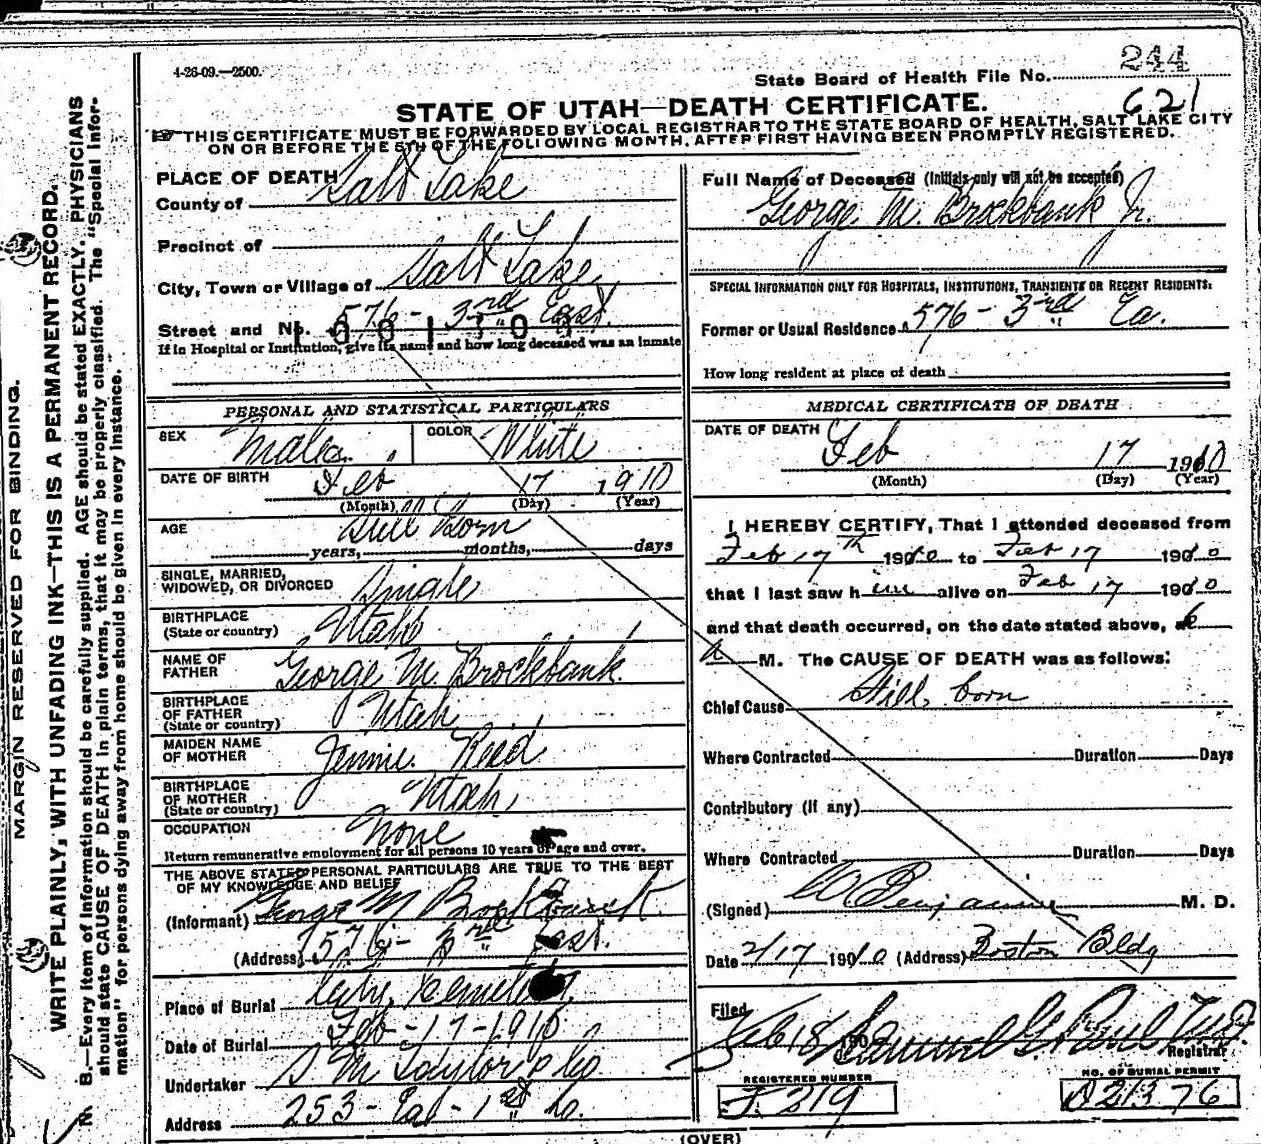 4-26-09.—2500.
State Board of Health File No. 244
621
STATE OF UTAH—DEATH CERTIFICATE.
THIS CERTIFICATE MUST BE FORWARDED BY LOCAL REGISTRAR TO THE STATE BOARD OF HEALTH, SALT LAKE CITY
ON OR BEFORE THE 5TH OF THE FOLLOWING MONTH, AFTER FIRST HAVING BEEN PROMPTLY REGISTERED.
MARGIN RESERVED FOR BINDING.
WRITE PLAINLY, WITH UNFADING INK—THIS IS A PERMANENT RECORD.
N. B.—Every item of information should be carefully supplied. AGE should be stated EXACTLY. PHYSICIANS
should state CAUSE OF DEATH in plain terms, that it may be properly classified. The "Special Infor-
mation" for persons dying away from home should be given in every instance.
PLACE OF DEATH
County of Salt Lake
Precinct of
City, Town or Village of Salt Lake
Street and No. 576 - 3rd East.
If in Hospital or Institution, give its name and how long deceased was an inmate
PERSONAL AND STATISTICAL PARTICULARS
SEX Male. COLOR White
DATE OF BIRTH Feb 17 1910
(Month) (Day) (Year)
AGE Still Born
years, months, days
SINGLE, MARRIED, WIDOWED, OR DIVORCED Single
BIRTHPLACE (State or country) Utah
NAME OF FATHER George M. Brockbank.
BIRTHPLACE OF FATHER (State or country) Utah
MAIDEN NAME OF MOTHER Jennie Reed
BIRTHPLACE OF MOTHER (State or country) Utah,
OCCUPATION None
Return remunerative employment for all persons 10 years of age and over.
THE ABOVE STATED PERSONAL PARTICULARS ARE TRUE TO THE BEST
OF MY KNOWLEDGE AND BELIEF
(Informant) George M Brockbank.
(Address) 576 - 3rd East.
Place of Burial City Cemetery
Date of Burial Feb - 17 - 1910
Undertaker S M Taylor & Co
Address 253 - East - 1st So.
Full Name of Deceased (Initials only will not be accepted)
George M. Brockbank Jr.
SPECIAL INFORMATION ONLY FOR HOSPITALS, INSTITUTIONS, TRANSIENTS OR RECENT RESIDENTS:
Former or Usual Residence 576 - 3rd Ea.
How long resident at place of death
MEDICAL CERTIFICATE OF DEATH
DATE OF DEATH Feb 17 1910
(Month) (Day) (Year)
I HEREBY CERTIFY, That I attended deceased from
Feb 17th 1910 to Feb 17 1910
that I last saw him alive on Feb 17 1910
and that death occurred, on the date stated above, at 6
a M. The CAUSE OF DEATH was as follows:
Chief Cause Still born
Where Contracted Duration Days
Contributory (if any)
Where Contracted Duration Days
(Signed) Benjamin M. D.
Date 2/17 1910 (Address) Boston Bldg
Filed
Feb 18 190 Samuel G. Paul M.D.
Registrar
REGISTERED NUMBER
F 219
NO. OF BURIAL PERMIT
A 21376
(OVER)